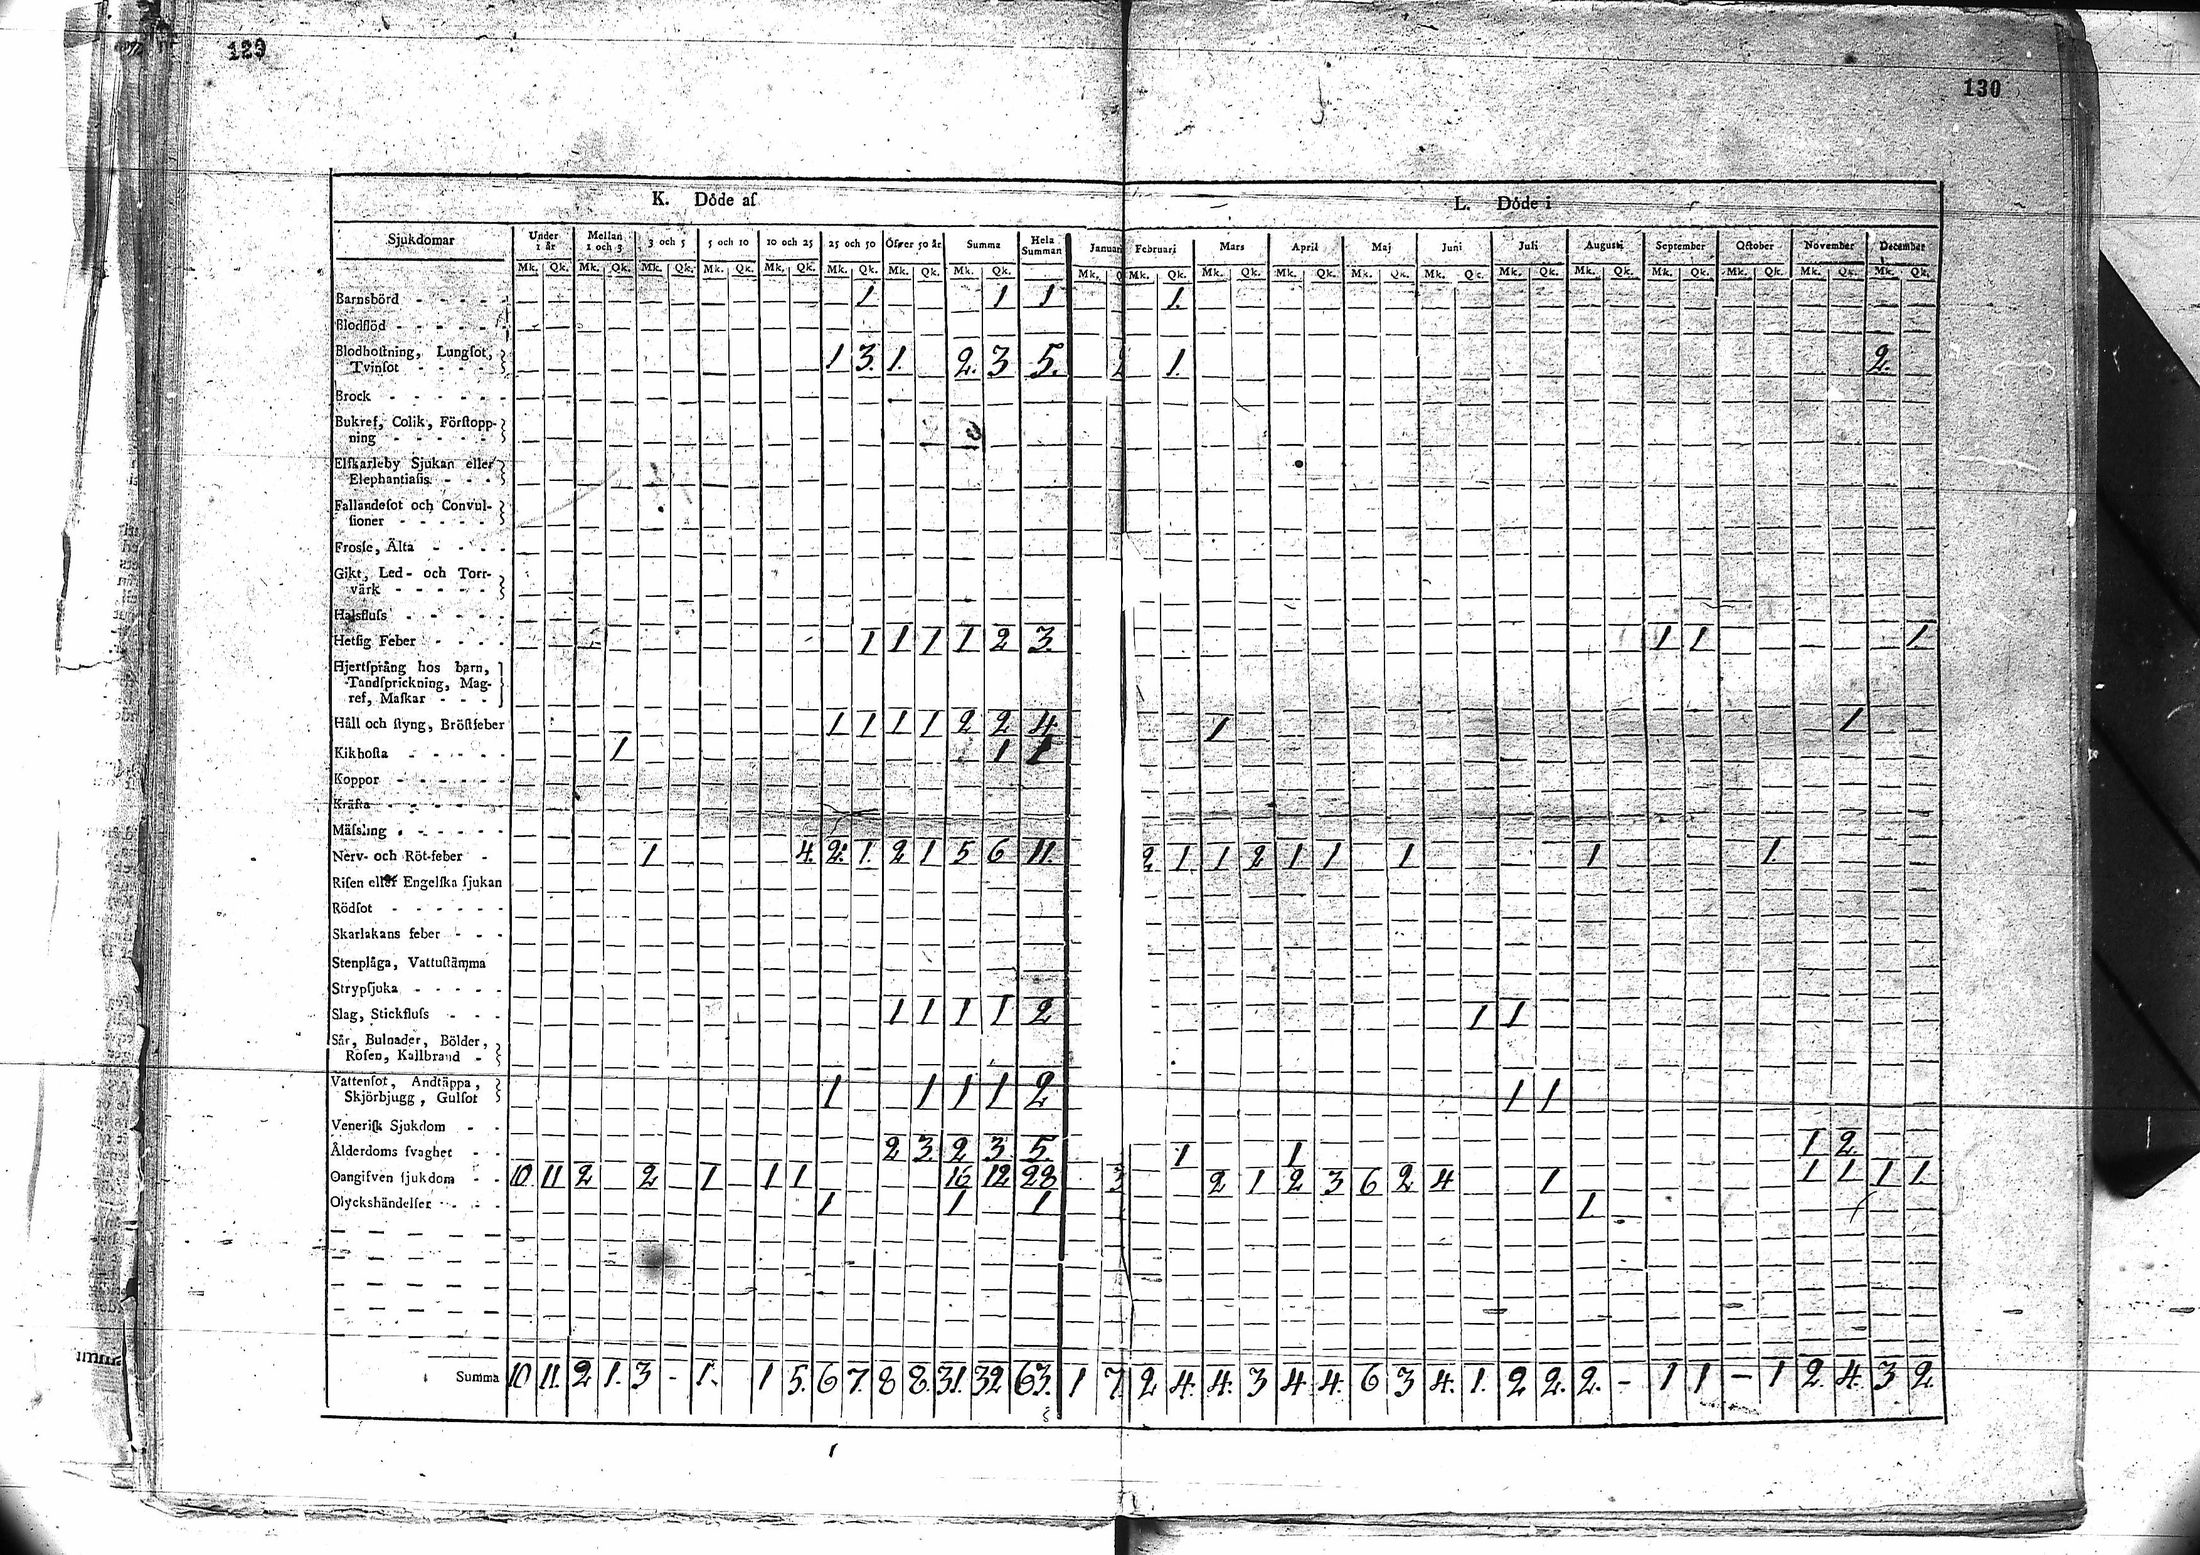 129
130
K. Döde af
L. Döde i
Sjukdomar Under 1 år Mellan 1 och 3 3 och 5 5 och 10 10 och 25 25 och 50 Öfver 50 år Summa Hela Summan Januari Februari Mars April Maj Juni Juli Augusti September October November December
Mk. Qk. Mk. Qk. Mk. Qk. Mk. Qk. Mk. Qk. Mk. Qk. Mk. Qk. Mk. Qk. Mk. Q Mk. Qk. Mk. Qk. Mk. Qk. Mk. Qk. Mk. Qk. Mk. Qk. Mk. Qk. Mk. Qk. Mk. Qk. Mk. Qk. Mk. Qk.
Barnsbörd 1 1 1 1.
Blodflöd
Blodhostning, Lungſot,
Tvinſot 1 3. 1. 2. 3 5. 2 1. 2.
Brock
Bukref, Colik, Förſtopp-
ning
Elſkarleby Sjukan eller
Elephantiaſis
Fallandeſot och Convul-
ſioner
Froſſe, Älta
Gikt, Led- och Torr-
värk
Halsfluſs
Hetſig Feber 1 1 1 1 2 3. 1 1 1.
Hjertſprång hos barn,
Tandſprickning, Mag-
ref, Maſkar
Håll och ſtyng, Bröſtfeber 1 1 1 1 2 2 4 1 1
Kikhoſta 1 1 1
Koppor
Kräfta
Mäſsling
Nerv- och Röt-feber 1 4. 2. 1. 2 1 5 6 11. 2. 1. 1 2 1 1 1 1 1.
Riſen eller Engelſka ſjukan
Rödſot
Skarlakans feber
Stenplåga, Vattuſtämma
Strypſjuka
Slag, Stickfluſs 1 1 1 1 2 1 1
Sår, Bulnader, Bölder,
Roſen, Kallbrand
Vattenſot, Andtäppa,
Skjörbjugg, Gulſot 1 1 1 1 2 1 1
Veneriſk Sjukdom
Ålderdoms ſvaghet 2 3. 2 3. 5. 1 1 1 2.
Oangifven ſjukdom 10 11 2 2 1 1 1 16 12 28 3 2 1 2 3 6 2 4 1 1 1 1 1.
Olyckshändelſer 1 1 1 1.
Summa 10 11. 2 1. 3 - 1. 1 5. 6 7. 8 8. 31. 32 63. 1 7. 2 4. 4. 3 4. 4. 6 3 4. 1. 2 2. 2. - 1 1 - 1 2. 4. 3 2.